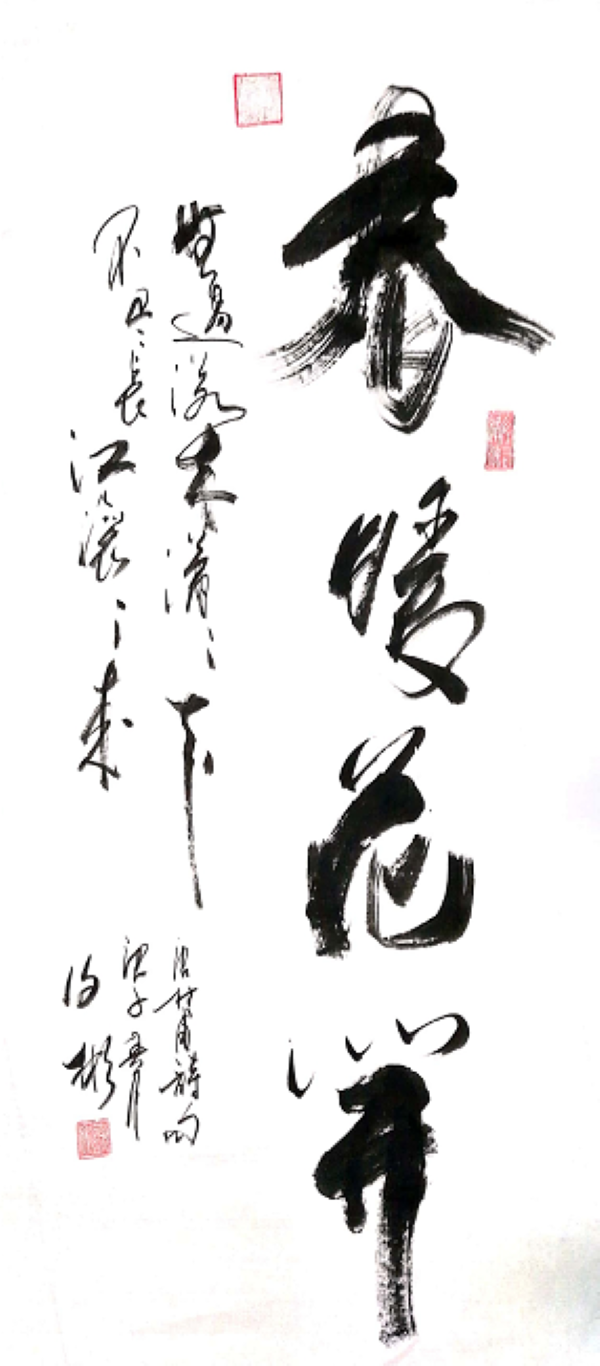 春暖花開
無邊落木蕭々下
不盡長江滾々來
唐杜甫詩句
子春月
彬